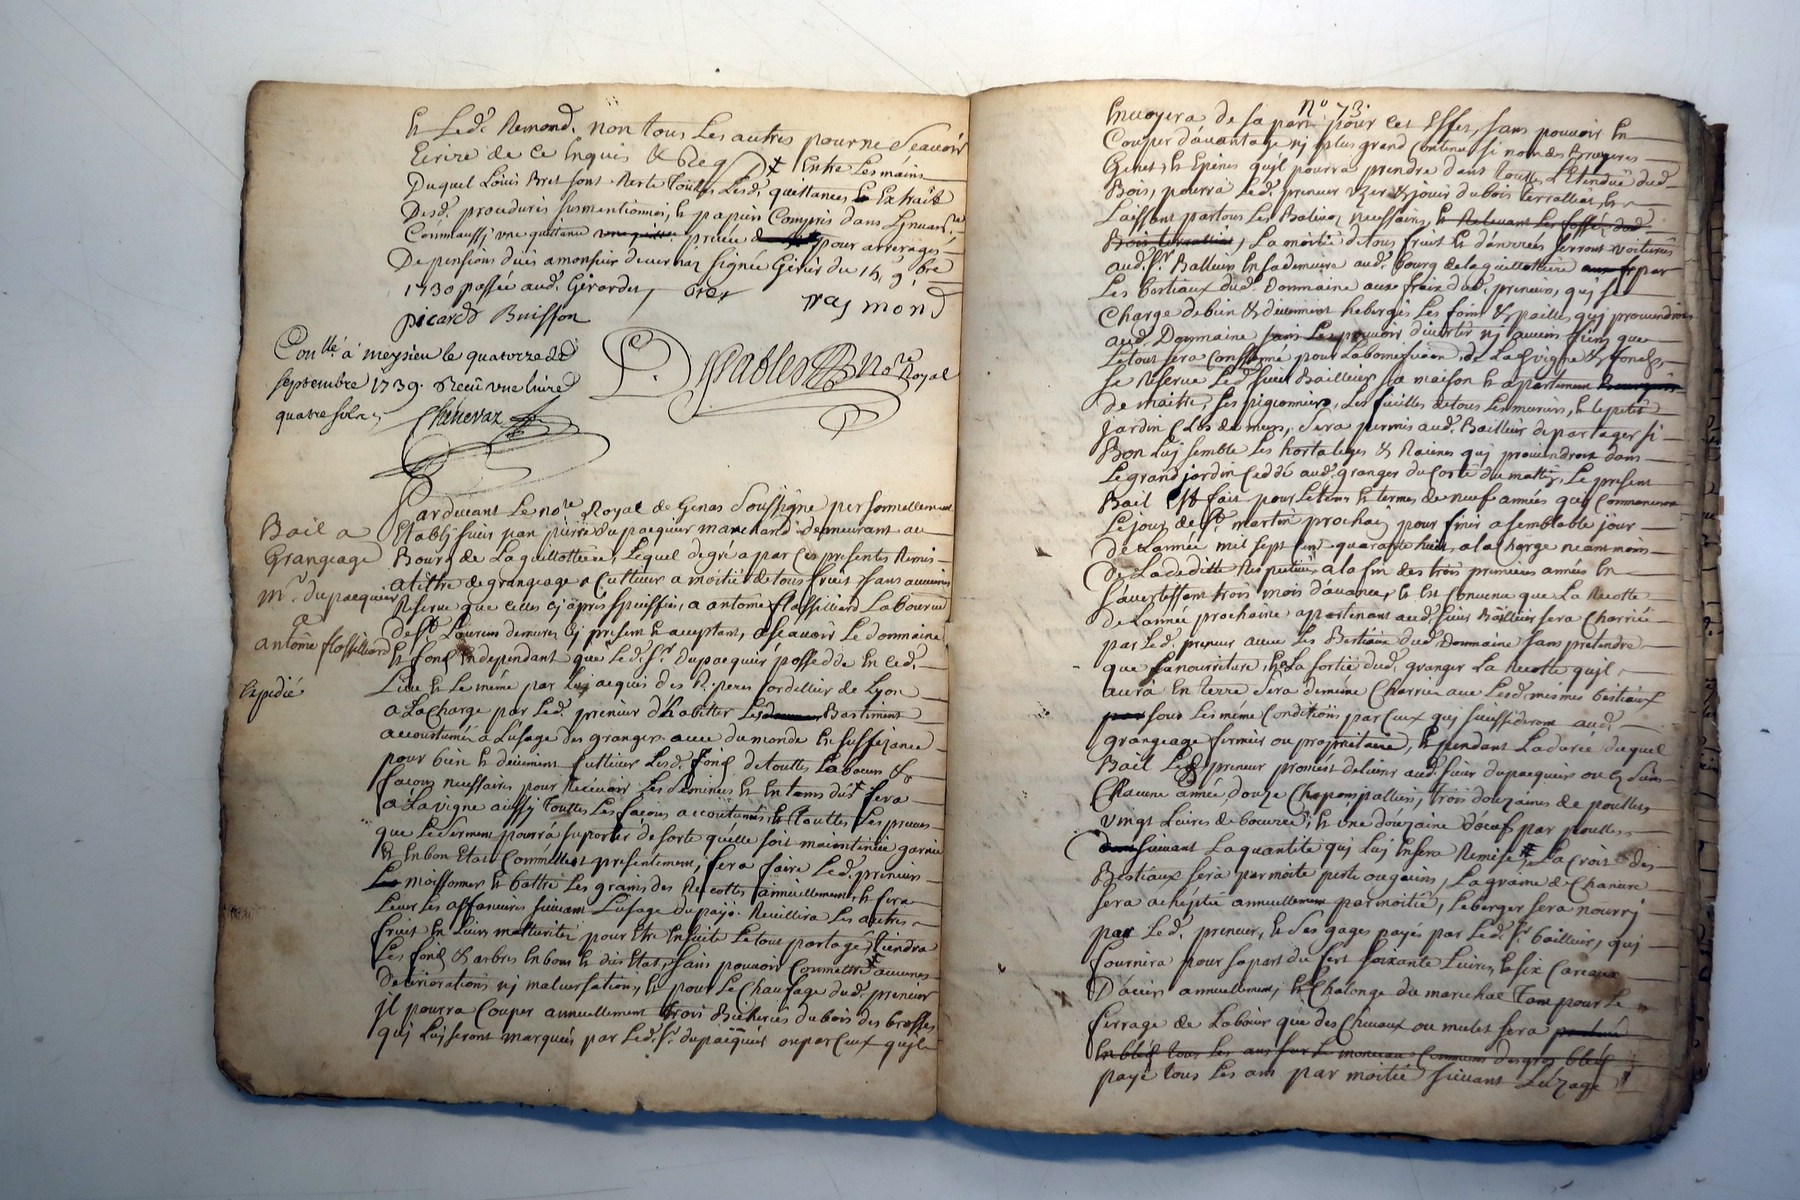 Et Led. Remond. non tous Les autres pour ne Scavoir
Ecrire de Ce Enquis & Req Entre Les mains
Duquel Loüis Bret sont Resté toutes Lesd. quittances Et Extrait
Desd. procedures susmentionnes, Et papiers Compris dans
Comm'aussy une quittance pour arrerages
De pensions dües a monsieur signée Girier du 14 9.bre
1730 passée aud.
picard Buisson ray mond
Con.llé a meysieu le quatorze
septembre 1739. Receu une livre
quatre sols
Chenevaz
No.re Royal
Bail a
Grangeage
M.r dupacquier
a
antoine flossilliard
Expedié
Pardevant Le No.re Royal de Genas Soussigne personnellement
Etably sieur jean pierre dupacquier marchand demeurant au
Bourg de La guillottiere, Lequel de gré a par Ces presentes Remis
a tittre de grangeage a Cultiver a moitié de tous fruits sans aucunes
Reserve que celles cy apres Speciffiée, a antoine flossilliard Laboureur
de St Laurent demures cy present Et acceptant, a Scavoir Le dommaine
Et fond Independant que Led. Sr. dupacquier possedde En Ced.
Lieu Et Le même par Luy acquis des R. peres Cordellier de Lyon
a La Charge par Led. preneur d'habitter Les Bastiment
accoustumés a L'usage des granger avec du monde En suffizance
pour bien Et deüement Cultiver Lesd. fond de touttes Labours &
façons necessaires pour Recevoir Les semences Et En tems dû fera
a La vigne aussy touttes Les façons accoutumés Et touttes Les
que Le serment pourra suporter de sorte qu'elle soit maintenüe garnie
Et En bon Etat Comm'Elle Est presentement, fera faire Led. preneur
moissonner Et battre Les grains des Recoltes annuellement, Et fera
Lever Les affanures suivant L'usage du pays. Recüillira Les autres
fruit En Leurs maturités pour Etre En suite Le tout partagé, tiendra
Les fond & arbres En bon Et dû Etat, sans pouvoir Commettre aucunes
Deteriorations ny malversations, Et pour Le Chaufage dud. preneur
il pourra Couper annuellement trois Bicherées du bois des brosses
qui Luy seront marqués par Led. Sr. dupacquier ou par Ceux qu'il
No. 73.
Envoyera de sa part pour Cet Effet, sans pouvoir En
Couper d'avantage ny plus grand Contenu si non des Bruyeres
Genet, Et Epines qu'il pourra prendre dans toutte L'Etendüe dud.
Bois, pourra Led. preneur uzer & joüir du bois
Laissant partous Les Balivaz necessaires, Et Relevant Les fossé dud.
Bois , La moitié de tous fruit Et d'anrées seront voiturés
aud. Sr. Bailleur En sa demeure aud. bourg de la guillottiere par
Les bestiaux dud. Dommaine aux fraix dud. preneur, qui se
Charge de bien & deüement heberger Les foins & pailles qui proviendront
aud. Dommaine sans Les pouvoir divertir ny aucuns fiens que
Le tout sera Consommé pour La bonification de La vigne & fonds,
Se Reserve Led. sieur Bailleur Sa maison Et apartement
de maitre, Ses pigeonniers, Les feüilles de tous Les muriers, Et Le petit
jardin Clos de murs, Sera permis aud. Bailleur de partager si
Bon Luy semble Les hortalages & Racines qui proviendront dans
Le grand jardin Ceddé aud. granger du Costé du mattin, Le present
Bail Est fait pour Le tems Et termes de neuf années qui Commencera
Le jour de St martin prochain pour finir a semblable jour
de L'année mil sept Cent quarante huit, a la Charge neantmoins
De La deditte Respective a la fin des trois premieres années En
s'avertissant trois mois d'avance, Et Est Convenu que La Recolte
de L'année prochaine apartenant aud. sieur Bailleur sera Charriée
par Led. preneur avec Les Bestiaux dud. Dommaine sans pretendre
que sa nourriture, Et a La sortie dud. granger La Recolte qu'il
aura En terre Sera de même Charriée avec Lesd. mesmes bestiaux
sous Les même Conditions par Ceux qui succederont aud.
grangeage fermier ou proprietaire, Et pendant La durée duquel
Bail Led. preneur promet delivrer aud. sieur dupacquier ou es siens
Chacune année douze Chapons paillers, trois douzaines de poullets
vingt Livres de beurre, Et une douzaine d'oeuf par poulles
suivant La quantité qui Luy En sera Remise, La Croit des
Bestiaux sera par moité perte ou gains, La graine de Chanvre
sera acheptée annuellement par moitié, Le berger sera nourry
par Led. preneur, Et Ses gages payés par Led. Sr. bailleur, qui
fournira pour sa part du fert soixante Livres, Et six Careaux
D'acier annuellement, Et Chalonge du marechal tant pour Le
ferrage de Labour que des Chevaux ou mulets sera
En bled tous Les ans sur Le monceau Commun des gros bled
payé tous Les ans par moitié suivant L'uzage